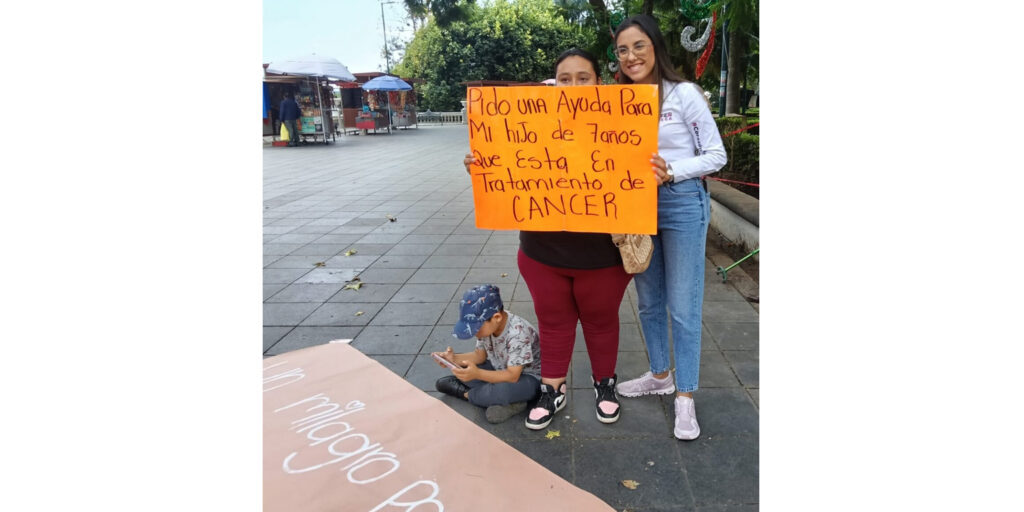 Pido una Ayuda Para
Mi hijo de 7 años
Que Esta En
Tratamiento de
CANCER
un milagro